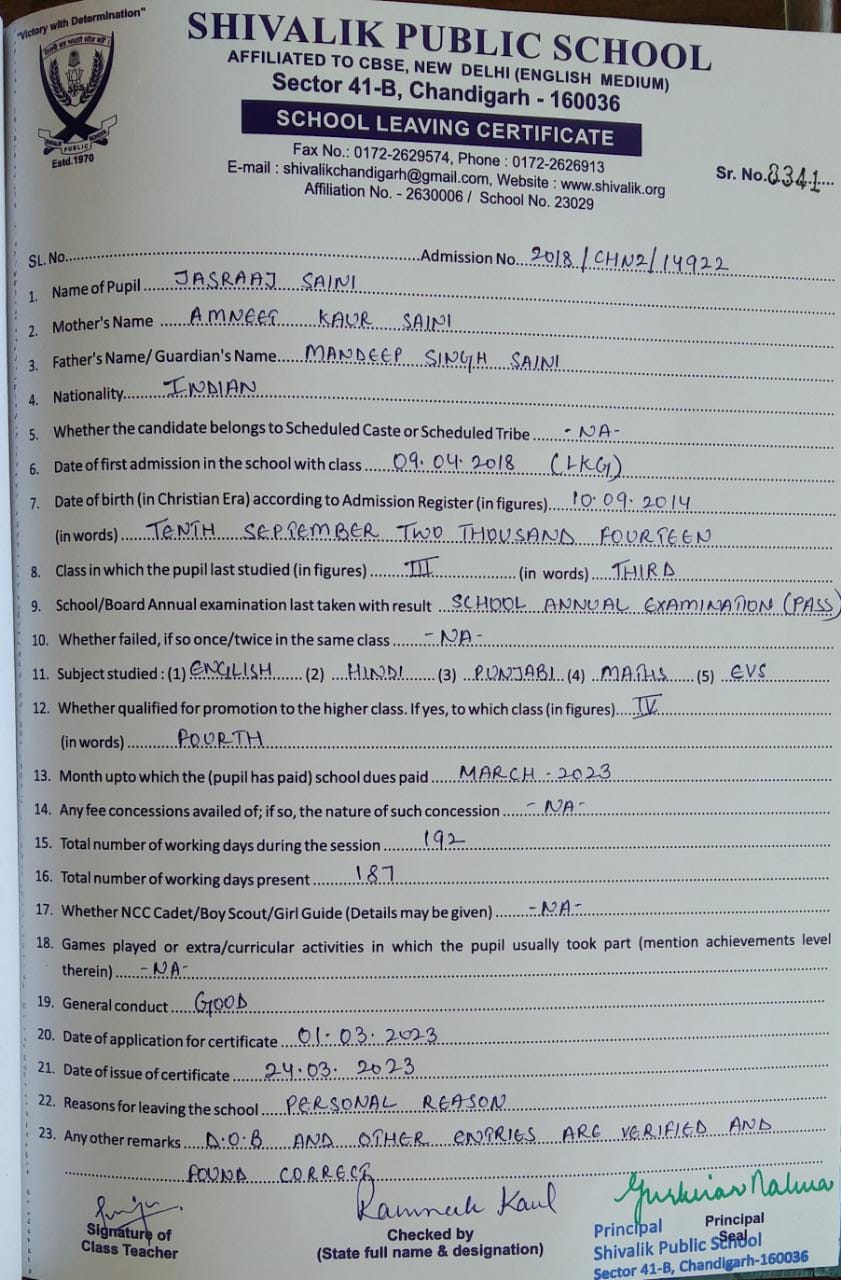 "Victory with Determination"
SHIVALIK PUBLIC SCHOOL
AFFILIATED TO CBSE, NEW DELHI (ENGLISH MEDIUM)
Sector 41-B, Chandigarh - 160036
SCHOOL LEAVING CERTIFICATE
Fax No.: 0172-2629574, Phone : 0172-2626913
E-mail : shivalikchandigarh@gmail.com, Website : www.shivalik.org
Affiliation No. - 2630006 / School No. 23029
SPS
PUBLIC SCHOOL
Estd.1970
Sr. No. 8341
SL. No. Admission No. 2018/CHN2/14922
1. Name of Pupil JASRAAJ SAINI
2. Mother's Name AMNEET KAUR SAINI
3. Father's Name/ Guardian's Name MANDEEP SINGH SAINI
4. Nationality INDIAN
5. Whether the candidate belongs to Scheduled Caste or Scheduled Tribe -NA-
6. Date of first admission in the school with class 09.04.2018 (LKG)
7. Date of birth (in Christian Era) according to Admission Register (in figures) 10.09.2014
(in words) TENTH SEPTEMBER TWO THOUSAND FOURTEEN
8. Class in which the pupil last studied (in figures) III (in words) THIRD
9. School/Board Annual examination last taken with result SCHOOL ANNUAL EXAMINATION (PASS)
10. Whether failed, if so once/twice in the same class -NA-
11. Subject studied : (1) ENGLISH (2) HINDI (3) PUNJABI (4) MATHS (5) EVS
12. Whether qualified for promotion to the higher class. If yes, to which class (in figures) IV
(in words) FOURTH
13. Month upto which the (pupil has paid) school dues paid MARCH - 2023
14. Any fee concessions availed of; if so, the nature of such concession -NA-
15. Total number of working days during the session 192
16. Total number of working days present 187
17. Whether NCC Cadet/Boy Scout/Girl Guide (Details may be given) -NA-
18. Games played or extra/curricular activities in which the pupil usually took part (mention achievements level
therein) -NA-
19. General conduct GOOD
20. Date of application for certificate 01.03.2023
21. Date of issue of certificate 24.03.2023
22. Reasons for leaving the school PERSONAL REASON
23. Any other remarks D.O.B AND OTHER ENTRIES ARE VERIFIED AND
FOUND CORRECT
Ramneek Kaul
Signature of
Class Teacher
Checked by
(State full name & designation)
Principal
Seal
Principal
Shivalik Public School
Sector 41-B, Chandigarh-160036